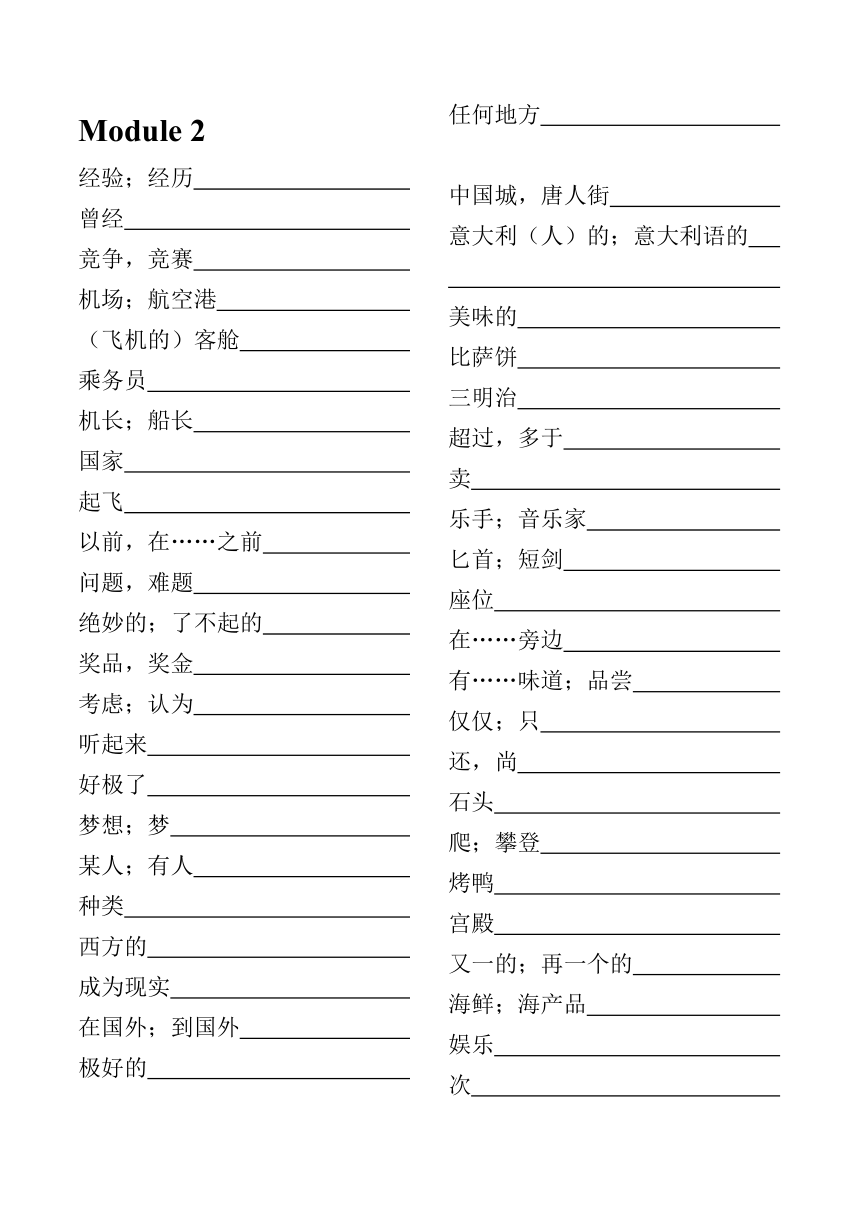 Module 2
经验；经历
曾经
竞争，竞赛
机场；航空港
（飞机的）客舱
乘务员
机长；船长
国家
起飞
以前，在……之前
问题，难题
绝妙的；了不起的
奖品，奖金
考虑；认为
听起来
好极了
梦想；梦
某人；有人
种类
西方的
成为现实
在国外；到国外
极好的
任何地方
中国城，唐人街
意大利（人）的；意大利语的
美味的
比萨饼
三明治
超过，多于
卖
乐手；音乐家
匕首；短剑
座位
在……旁边
有……味道；品尝
仅仅；只
还，尚
石头
爬；攀登
烤鸭
宫殿
又一的；再一个的
海鲜；海产品
娱乐
次